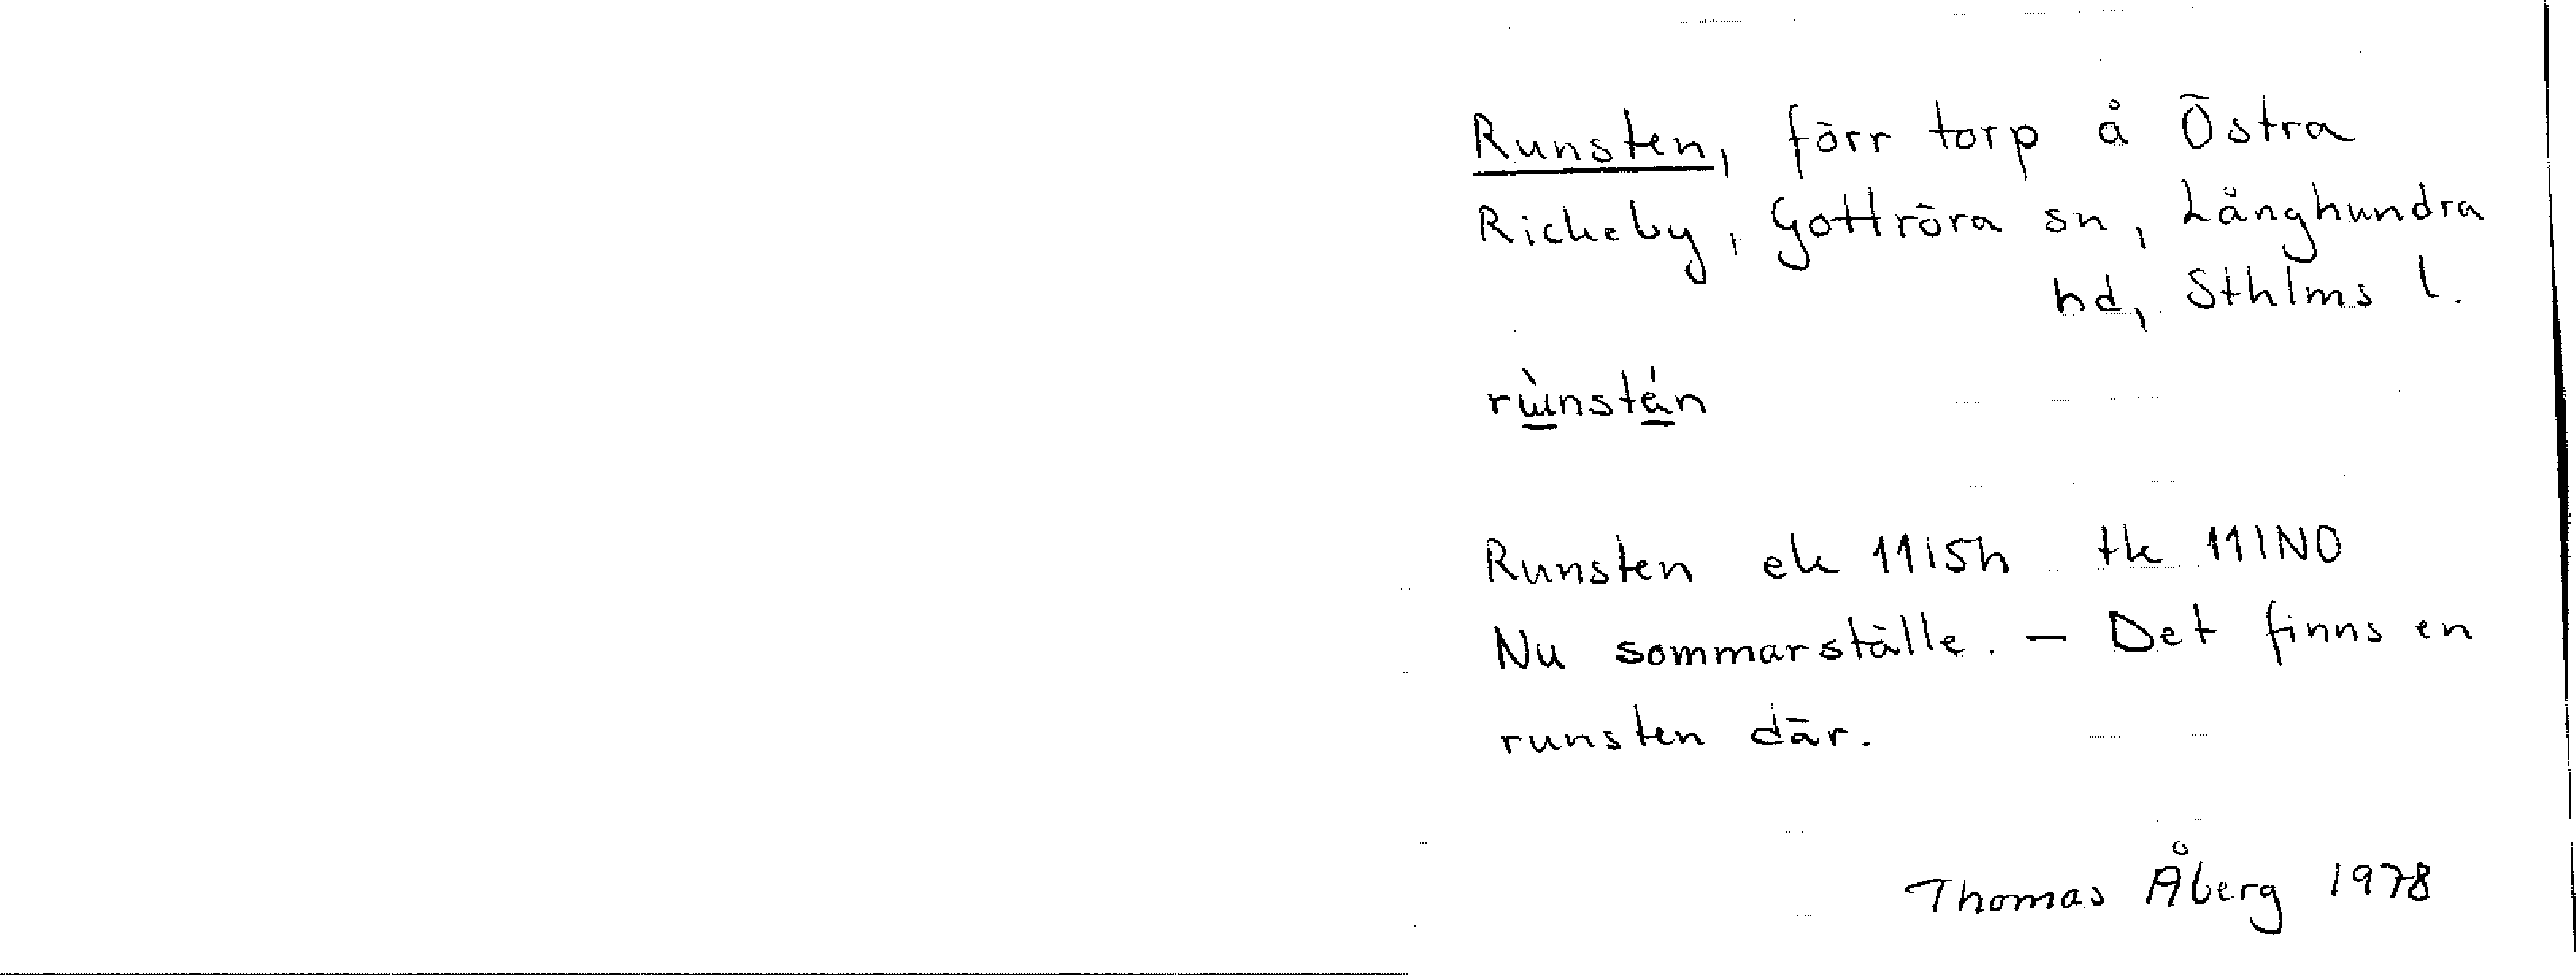 Runsten, förr torp å Östra
Rickeby, Gottröra sn, Långhundra
hd, Sthlms l.
rùnstén
Runsten ek 11I5h tk 11INO
Nu sommarställe. – Det finns en
runsten där.
Thomas Åberg 1978